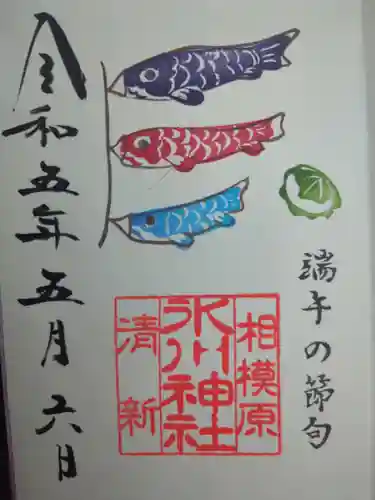 端午の節句
相模原
氷川神社
清新
令和五年五月六日